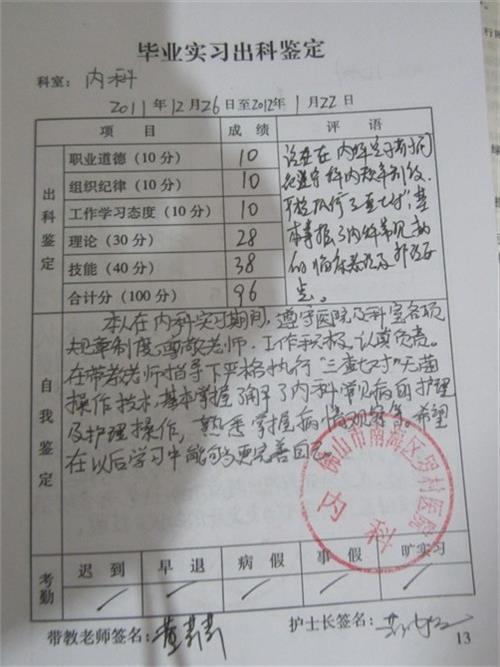 毕业实习出科鉴定
科室：内科
2011年12月26日至2012年1月22日
项目 成绩 评语
出科鉴定
职业道德（10分） 10
组织纪律（10分） 10
工作学习态度（10分） 10
理论（30分） 28
技能（40分） 38
合计分（100分） 96
该生在内科实习期间
能遵守科内规章制度，
严格执行"三查七对"，基
本掌握了内科常见病
的临床
自我鉴定
本人在内科实习期间，遵守医院及科室各项
规章制度，尊敬老师，工作积极，认真负责。
在带教老师指导下严格执行"三查七对"无菌
操作技术，基本掌握了解了内科常见病的护理
及护理操作，熟悉掌握病情观察等。希望
在以后学习中能够更完善自己。
佛山市南海区罗村医院
内科
考勤
迟到 早退 病假 事假 旷实习
/ / / / /
带教老师签名： 护士长签名：
13